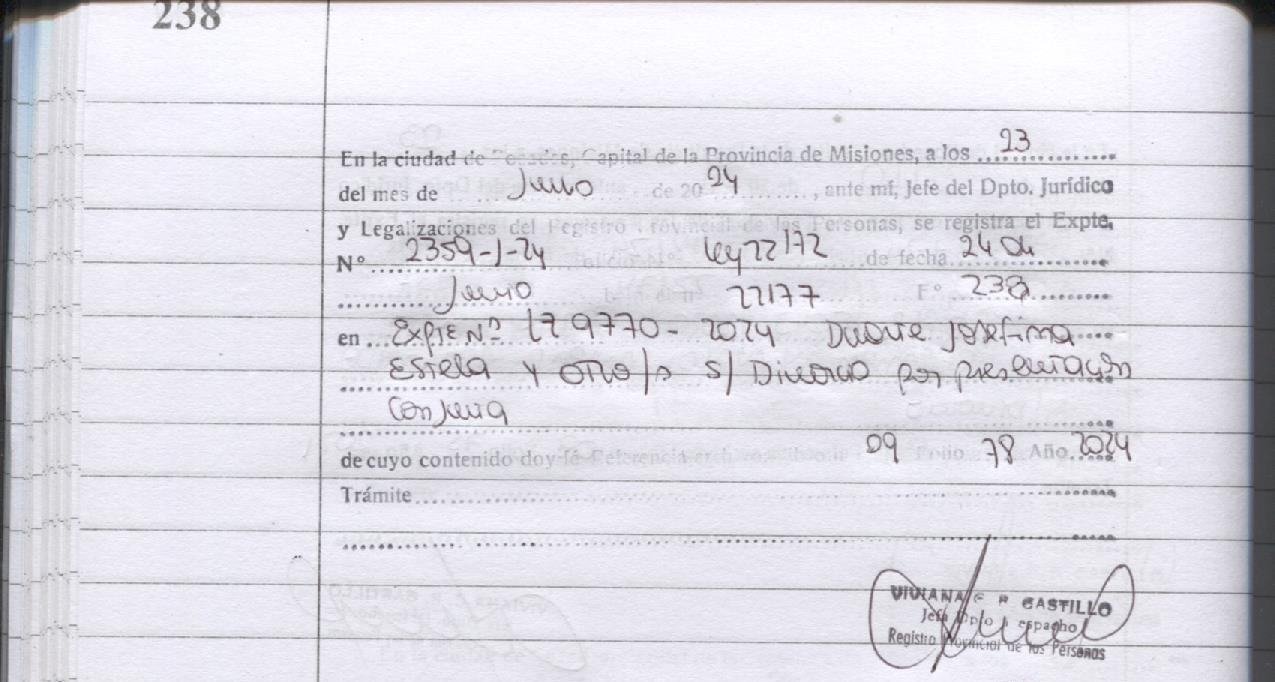 238
En la ciudad de Posadas, Capital de la Provincia de Misiones, a los 23
del mes de Junio de 20 24, ante mí, Jefe del Dpto. Jurídico
y Legalizaciones del Registro Provincial de las Personas, se registra el Expte.
N° 2359-1-24 Ley 22172 de fecha 24 04
Junio 22177 F° 238
en Expte Nº 179770-2024 Duarte Josefina
Estela y otro/s s/ Divorcio por presentación
Conjunta
de cuyo contenido doy fé Referencia 09 Folio 78 Año 2024
Trámite
VIVIANA CASTILLO
Jefa Dpto Despacho
Registro Provincial de las Personas